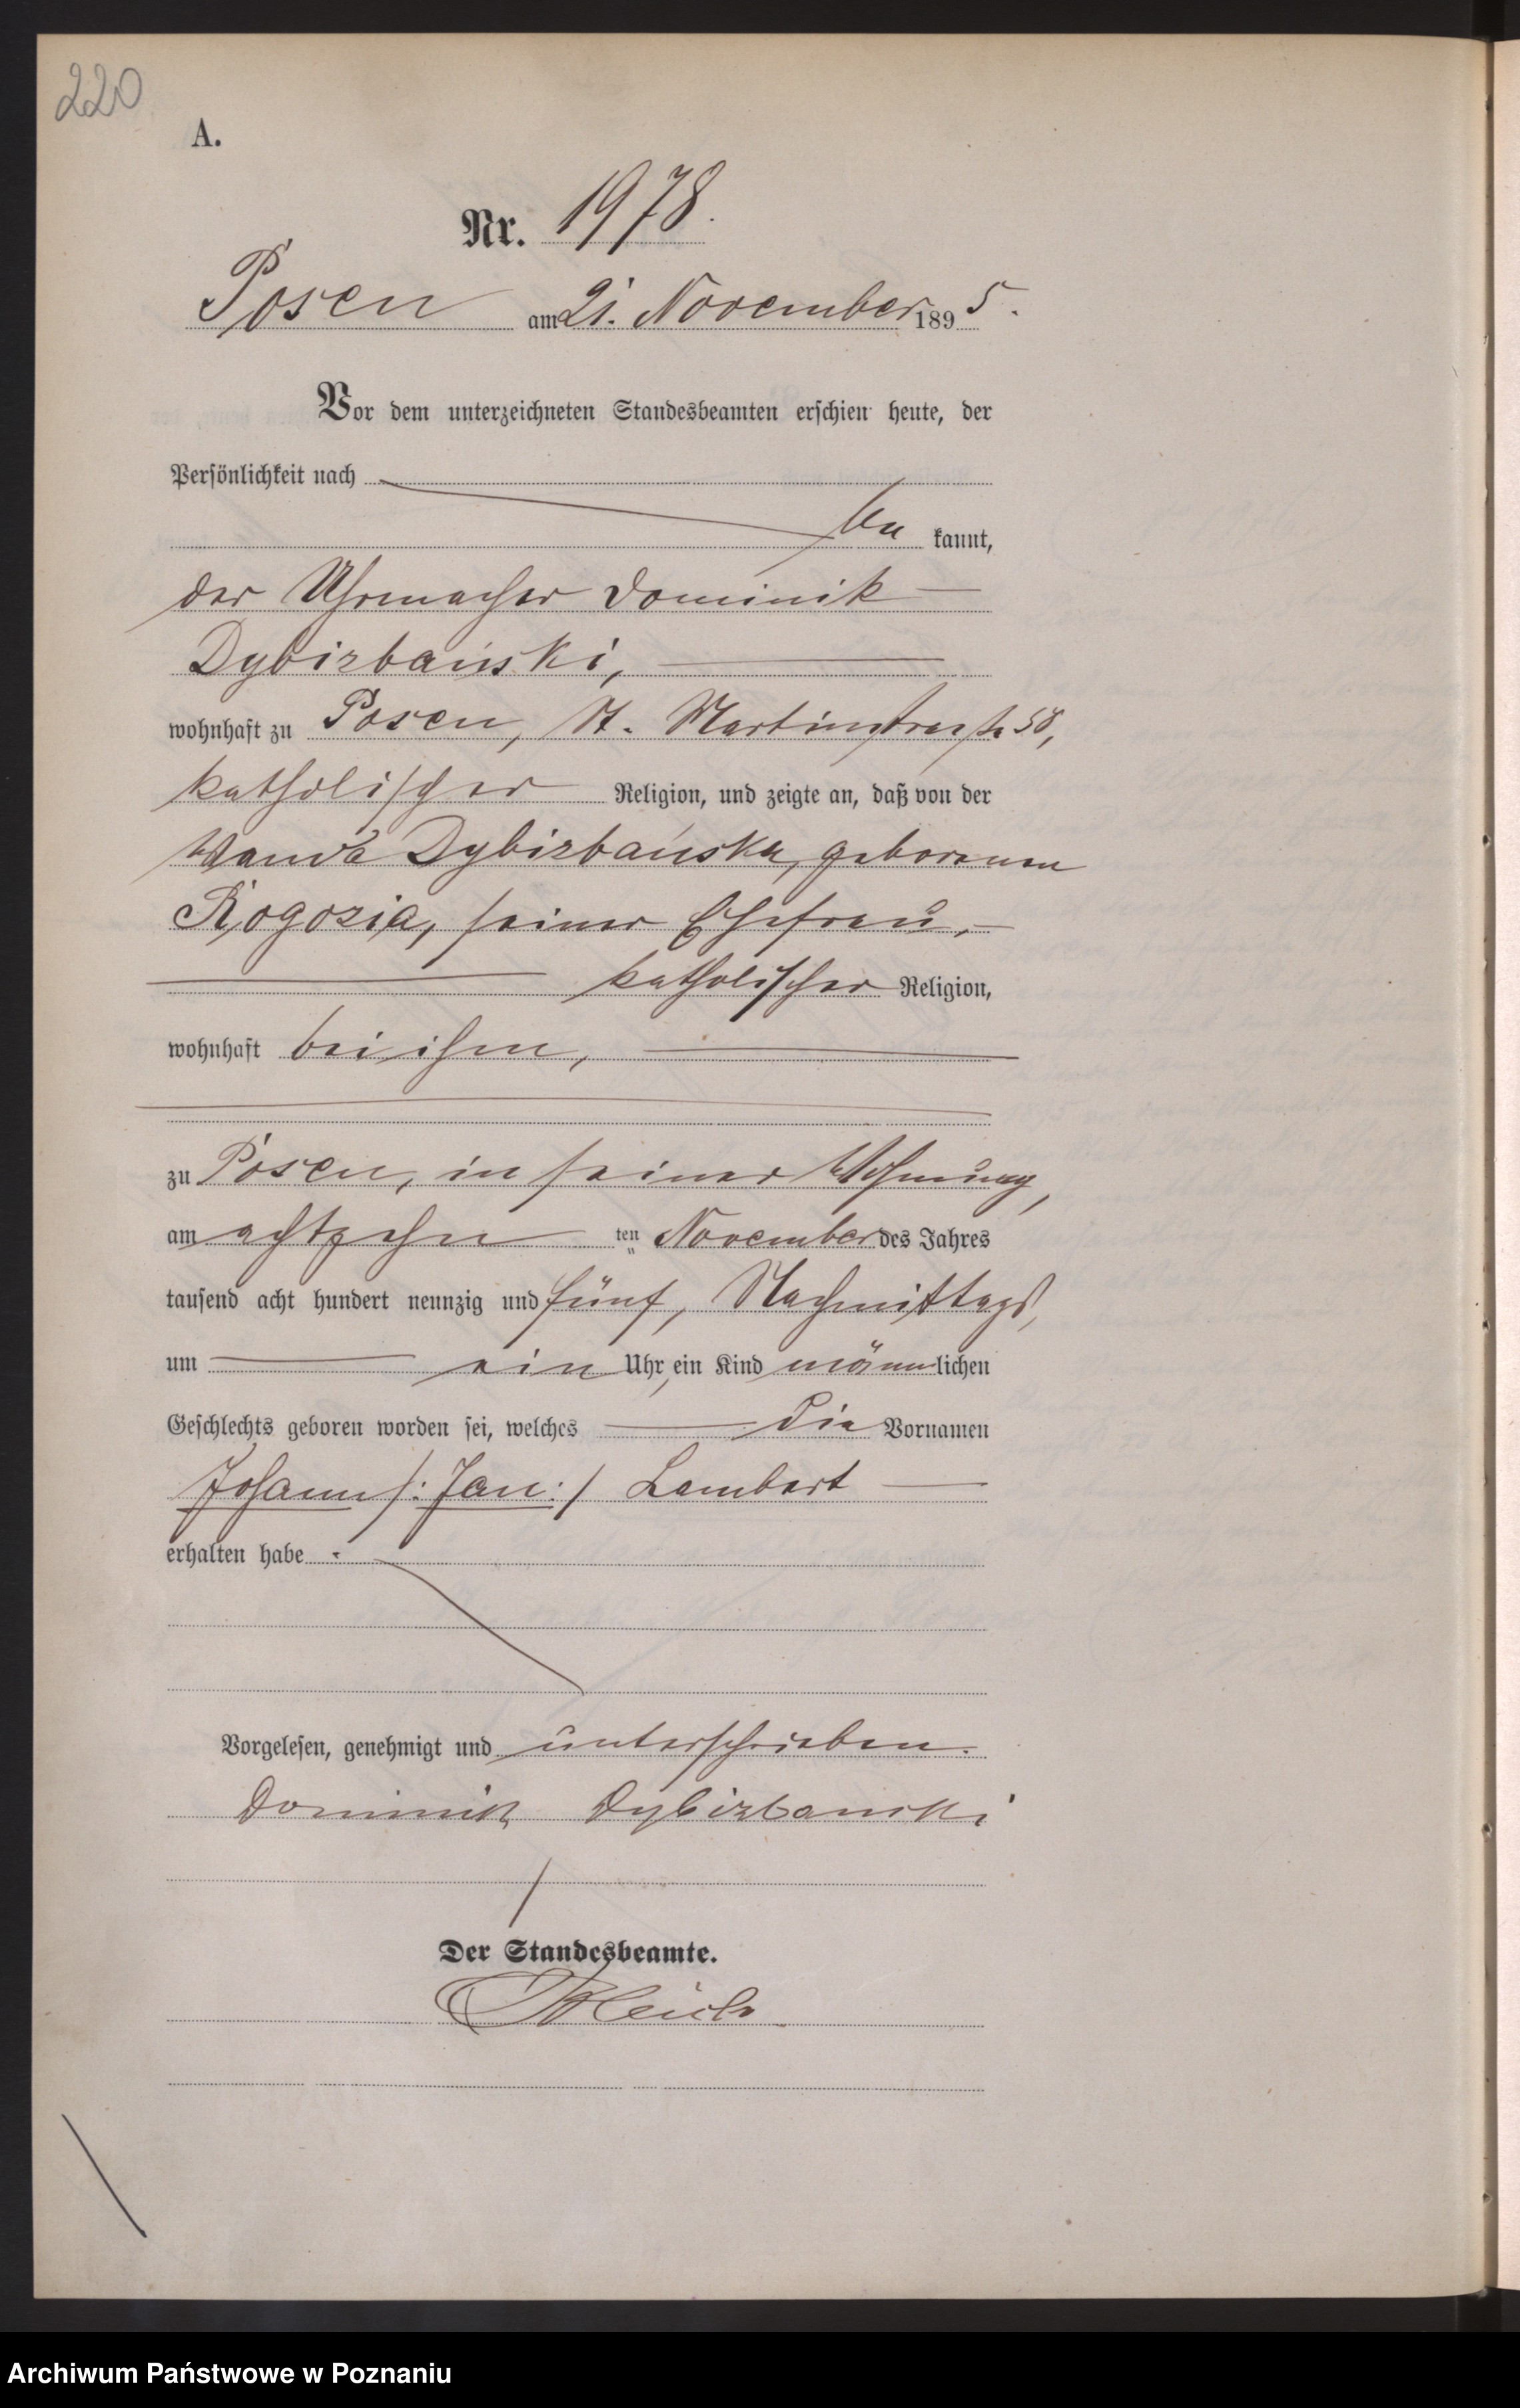 220
A.
Nr. 1978.
Posen am 21. November 1895.
Vor dem unterzeichneten Standesbeamten erschien heute, der
Persönlichkeit nach
be kannt,
der Uhrmacher Dominik
Dybizbański,
wohnhaft zu Posen, St. Martinstraße 58,
katholischer Religion, und zeigte an, daß von der
Wanda Dybizbańska, geborenen
Rogozia, seiner Ehefrau,
katholischer Religion,
wohnhaft bei ihm,
zu Posen, in seiner Wohnung,
am achtzehn ten November des Jahres
tausend acht hundert neunzig und fünf, Nachmittags,
um ein Uhr, ein Kind männlichen
Geschlechts geboren worden sei, welches die Vornamen
Johann /: Jan :/ Lambert
erhalten habe.
Vorgelesen, genehmigt und unterschrieben.
Dominik Dybizbanski
Der Standesbeamte.
Archiwum Państwowe w Poznaniu